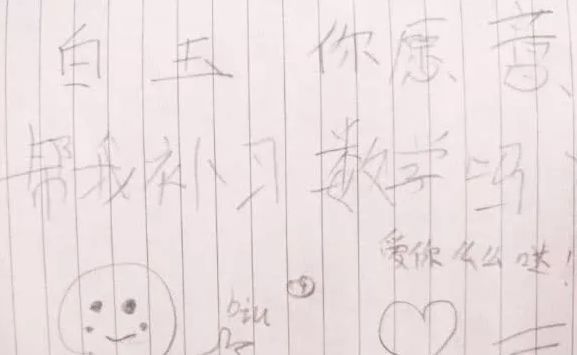 白玉 你愿意
帮我补习数学吗
爱你么么哒!
biu